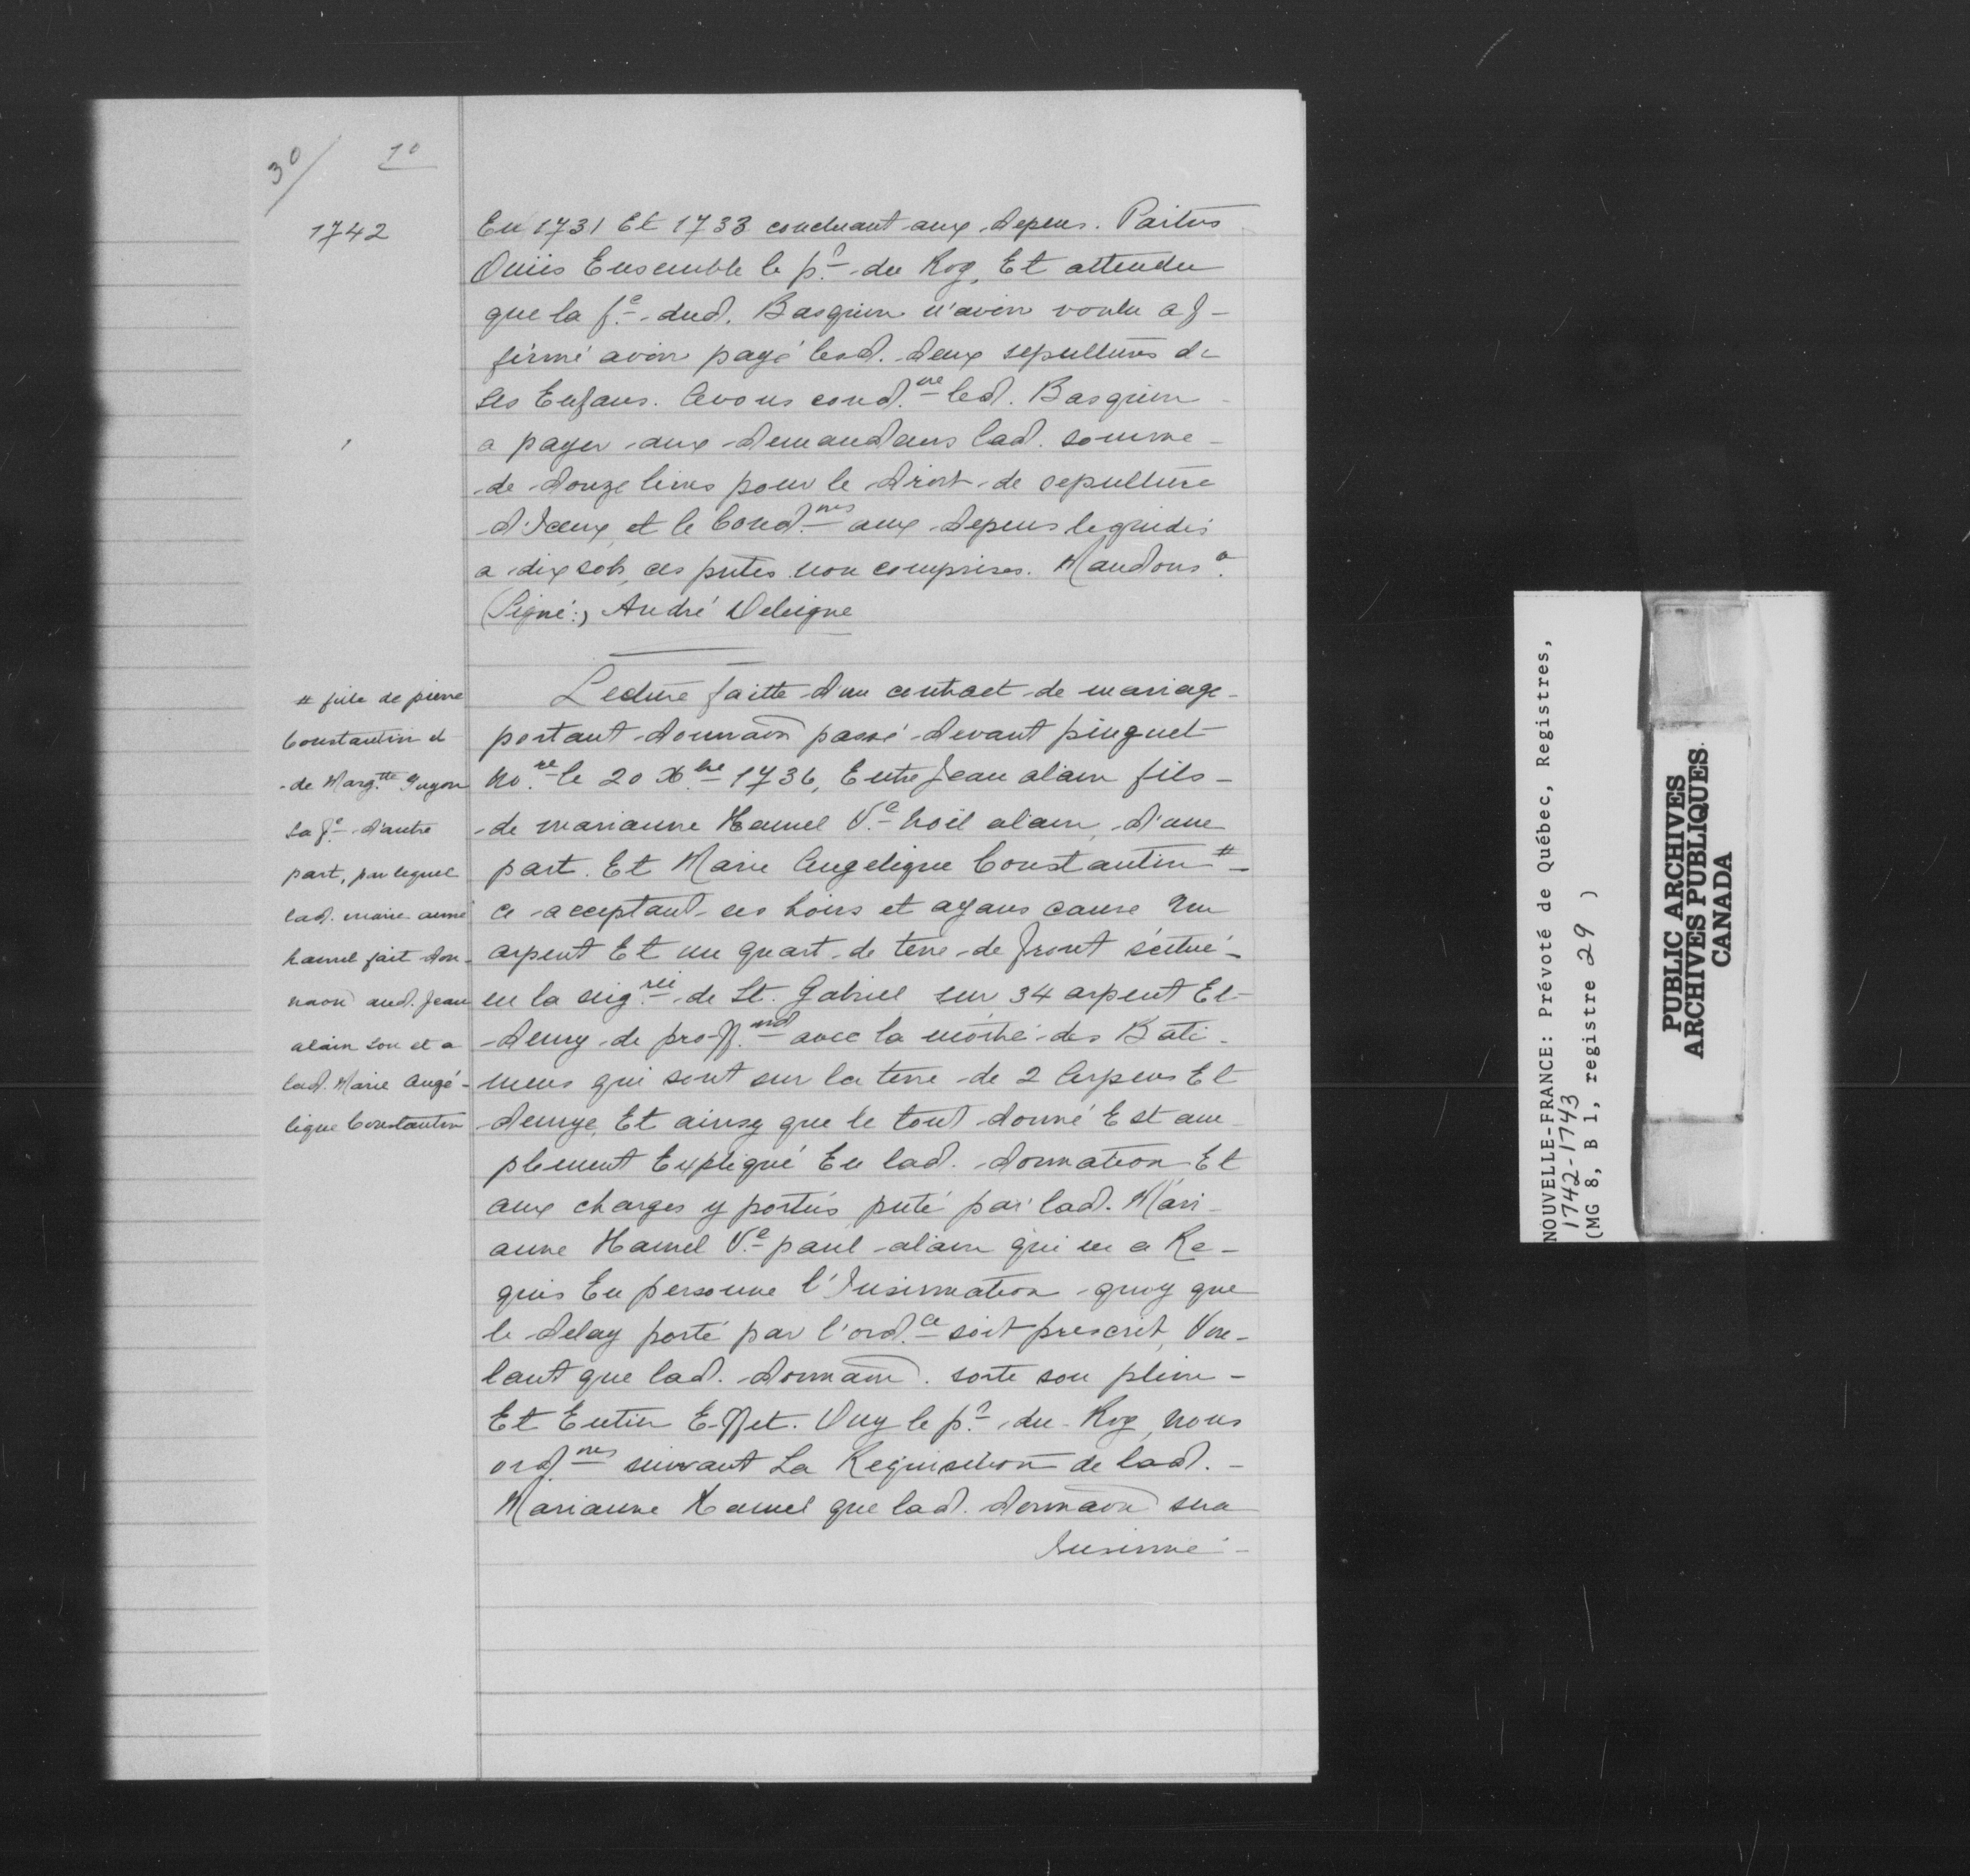 30/ 10
1742
En 1731 Et 1733 concluant aux depens. Parties
Ouïes Ensemble le p.r du Roy, Et attendu
que la f.e dud. Basquin n'avoir voulu af-
firmé avoir payé lesd. deux sepultures de
ses Enfans. Avons cond.ne led. Basquin
a payer aux demandeurs lad. somme
de douze livres pour le droit de sepulture
d'Iceux, et le Cond.nes aux depens liquidés
a dix sols, ces pntes non comprises. Mandons a.
(Signé:) André Deleigne
Lecture faitte d'un contract de mariage
portant donnaon passé devant pinguet
No.re le 20 Xbre 1736, Entre Jean alain fils
de marianne Hamel V.e Noël alain, d'une
part. Et Marie Angelique Constantin #
ce acceptant ses hoirs et ayans cause Un
arpent Et un quart de terre de front scitué
en la seig.rie de St. Gabriel sur 34 arpent Et
demy de proff.nd avec la moitié des Bati-
mens qui sont sur la terre de 2 Arpens Et
demye, Et ainsy que le tout donné Est am-
plement Expliqué En lad. donnation Et
aux charges y portés pnté par lad. Mari-
anne Hamel V.e paul alain qui en a Re-
quis En personne l'Insinuation quoy que
le delay porté par l'ord.ce soit prescrit, Vou-
lant que lad. donnaon. sorte son plein
Et Entier Effet. Ouy le p.r du Roy, nous
ord.nes suivant La Requisition de lad.
Marianne Hamel que lad. donnaon sera
Insinué
# fille de pierre
Constantin et
de Marg.tte Guyon
sa f.e d'autre
part, par lequel
lad. marie anne
hamel fait don-
naon aud. Jean
alain son et a
lad. Marie Angé-
lique Constantin
NOUVELLE-FRANCE: Prévoté de Québec, Registres,
1742-1743
(MG 8, B 1, registre 29 )
PUBLIC ARCHIVES
ARCHIVES PUBLIQUES
CANADA